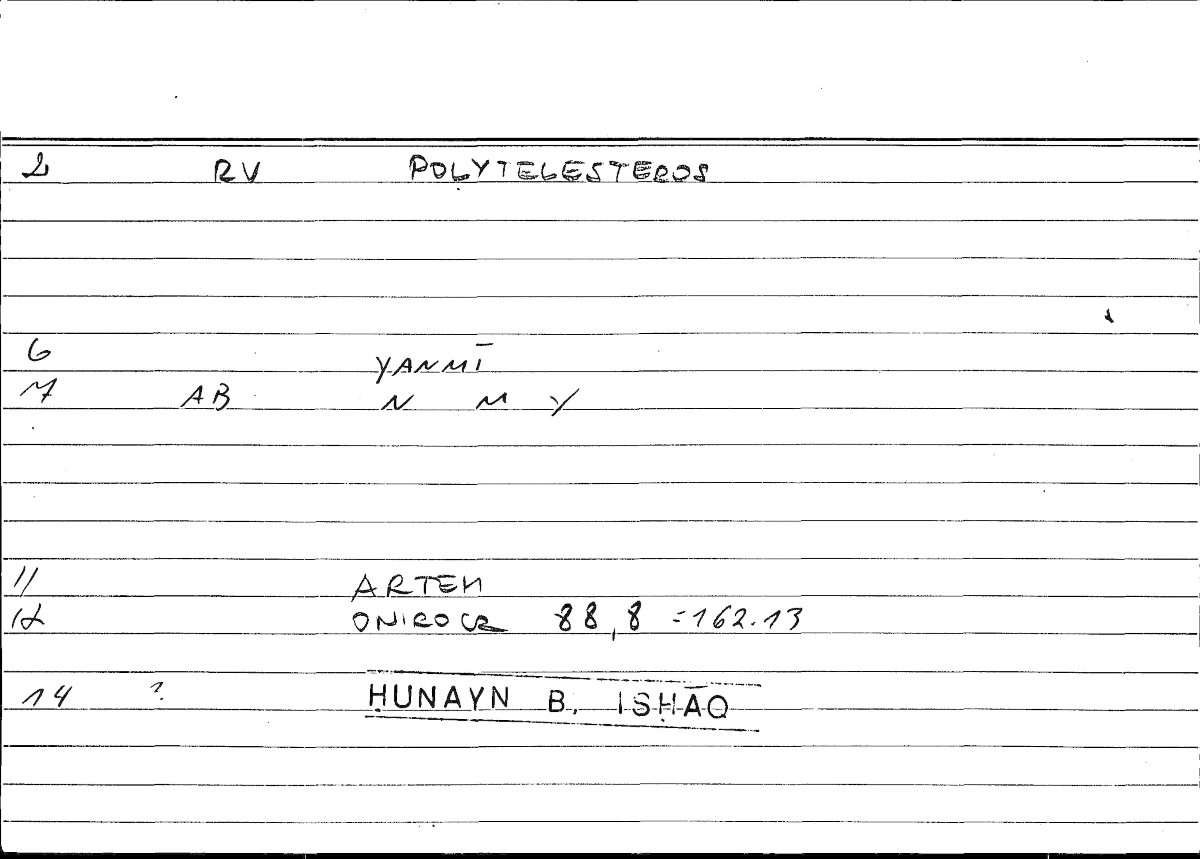 2 RV POLYTELESTEROS
6 YANMĪ
7 AB N M Y
11 ARTEM
12 ONIROCR 88,8 =162.13
14 ? ḤUNAYN B. ISḤĀQ